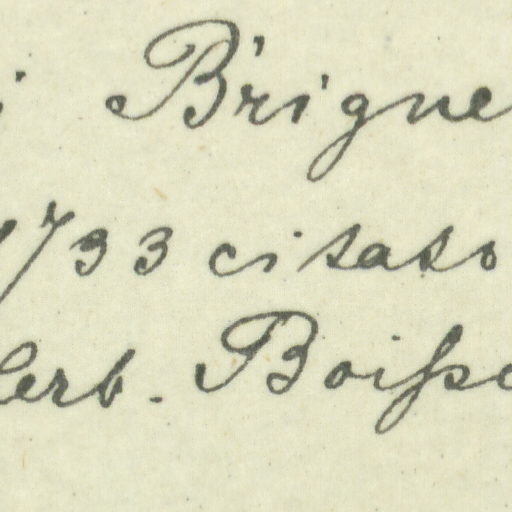 i Brigne
1733 citato
Herb. Boisse